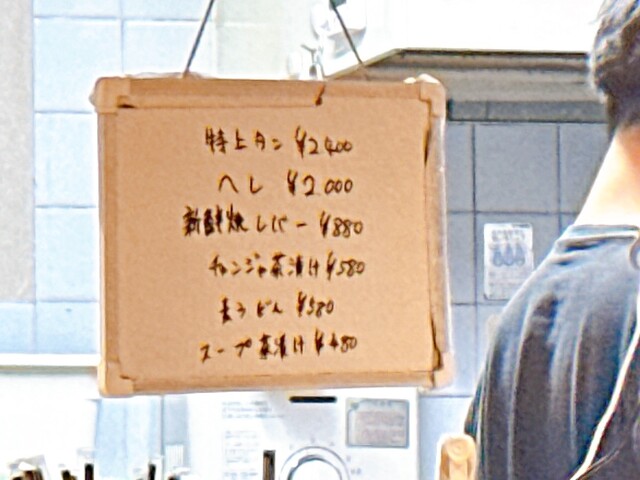 特上タン ¥2400
ヘレ ¥2000
新鮮焼レバー ¥880
チャンジャ茶漬け ¥580
¥580
スープ茶漬け ¥480